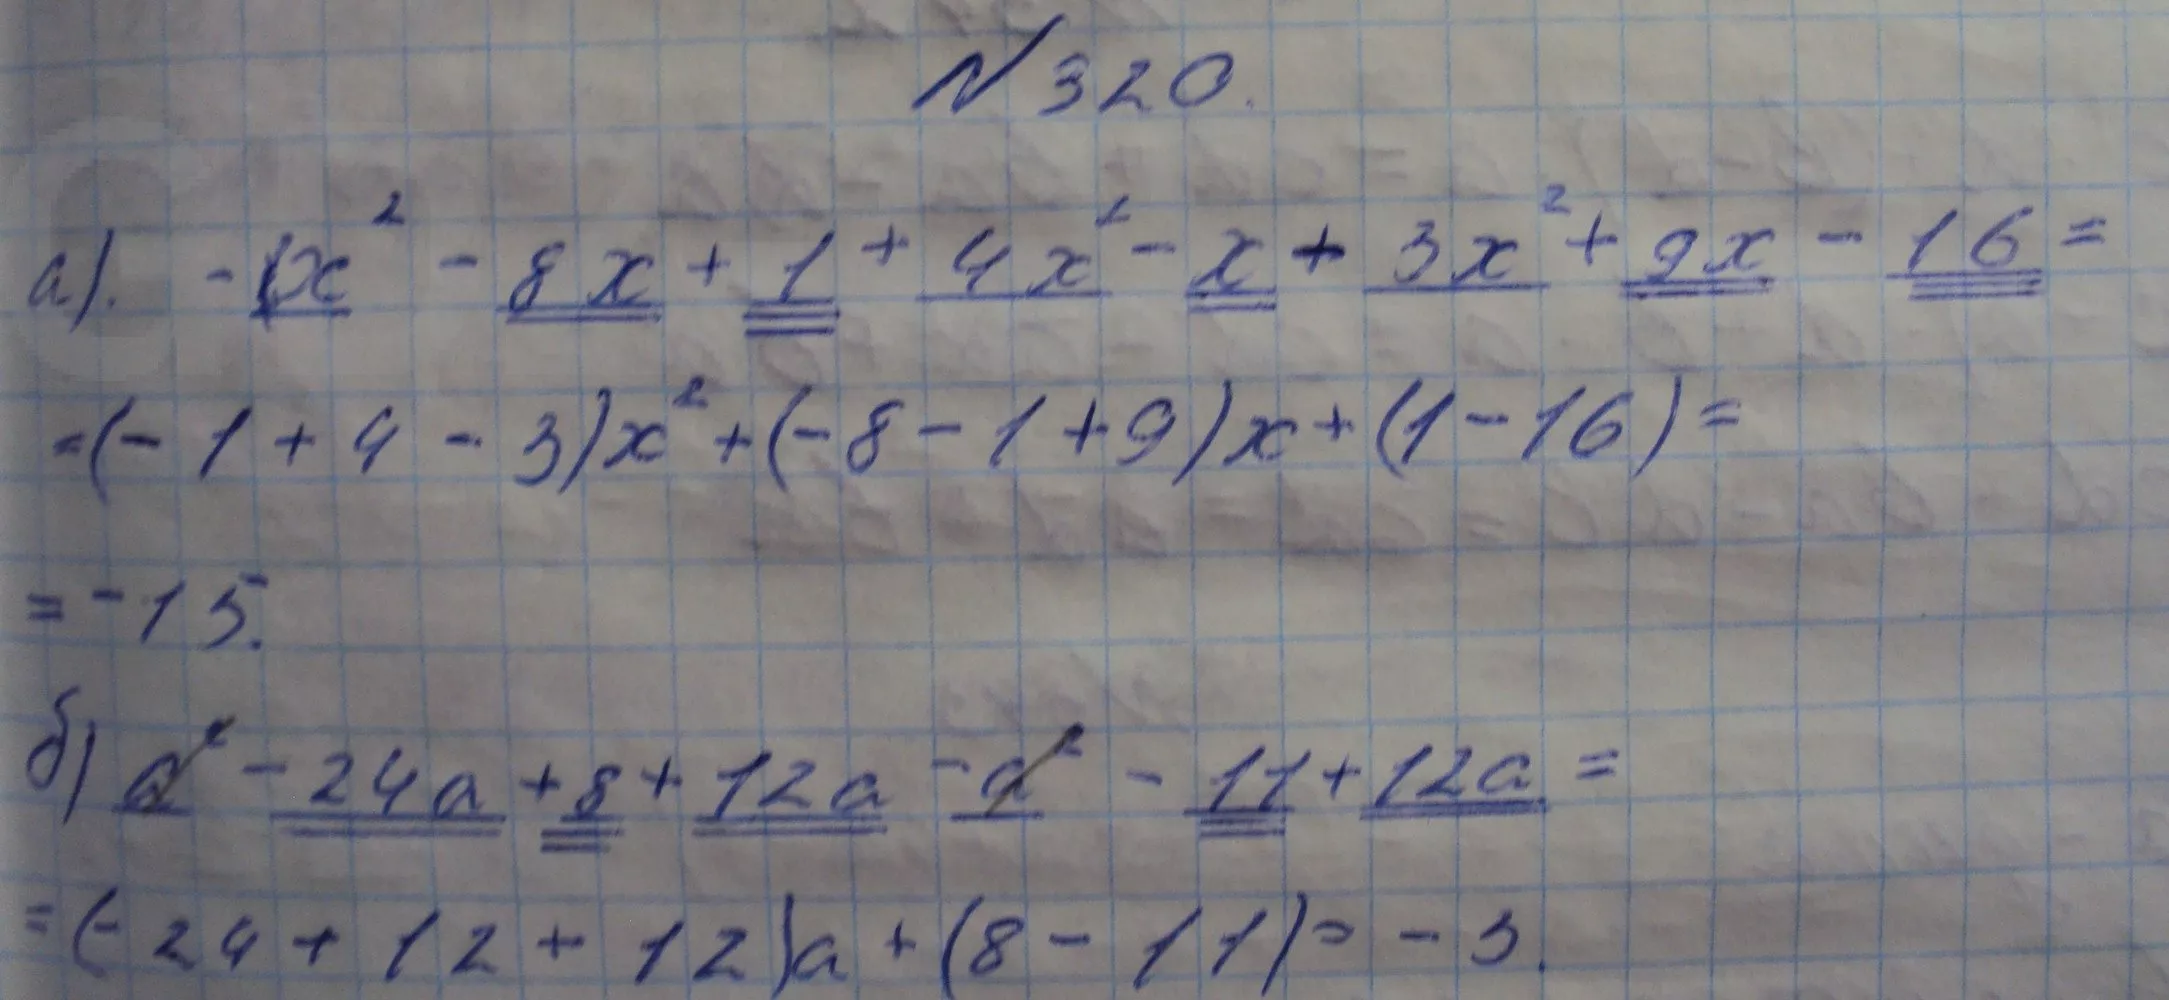 N 320.
а). -1x² - 8x + 1 + 4x² - x + 3x² + 9x - 16 =
= (- 1 + 4 - 3)x² + (- 8 - 1 + 9)x + (1 - 16) =
= - 15.
б) a² - 24a + 8 + 12a - a² - 11 + 12a =
= (- 24 + 12 + 12)a + (8 - 11) = - 3.